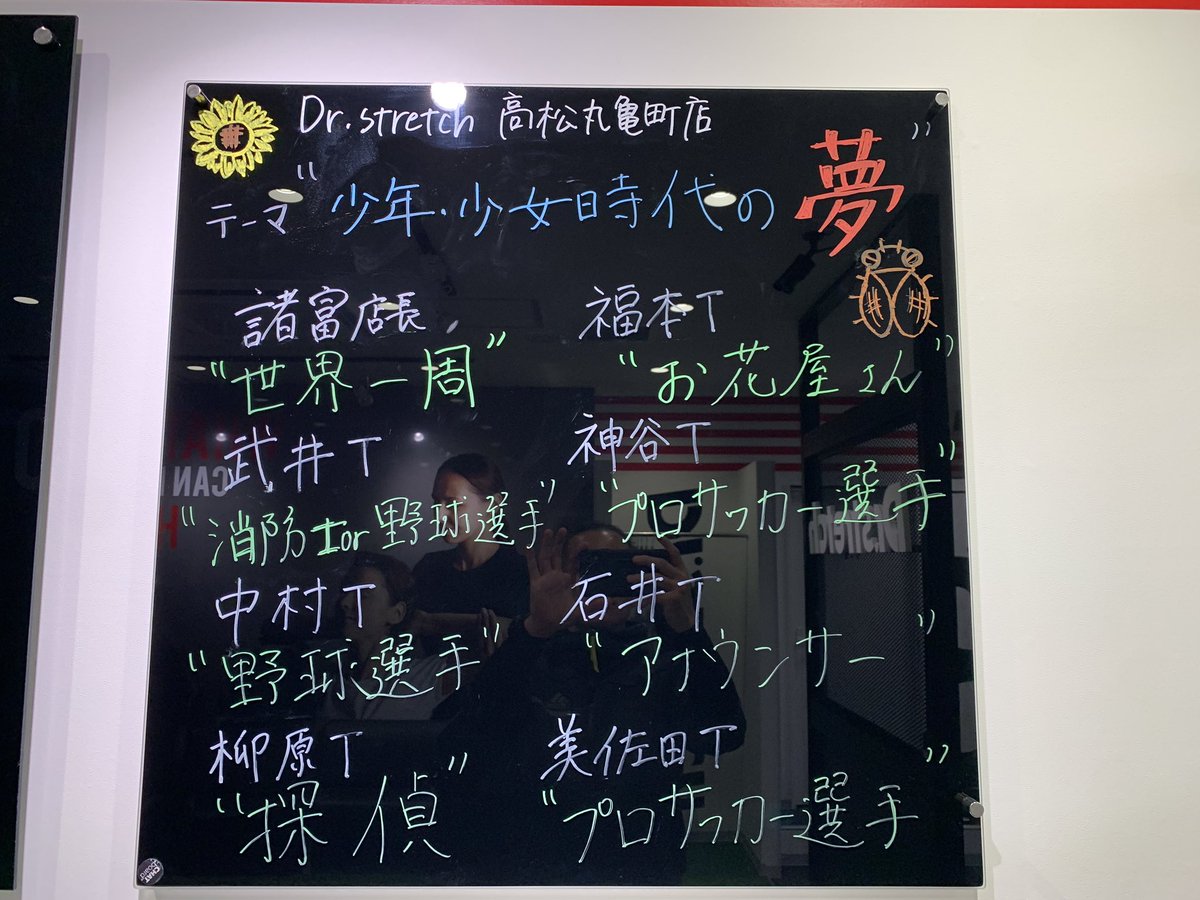 Dr.stretch 高松丸亀町店
テーマ "少年・少女時代の夢"
諸富店長
"世界一周"
福本T
"お花屋さん"
武井T
"消防士or野球選手"
神谷T
"プロサッカー選手"
中村T
"野球選手"
石井T
"アナウンサー"
柳原T
"探偵"
美佐田T
"プロサッカー選手"
CHAT board
CAN
Dr.stretch